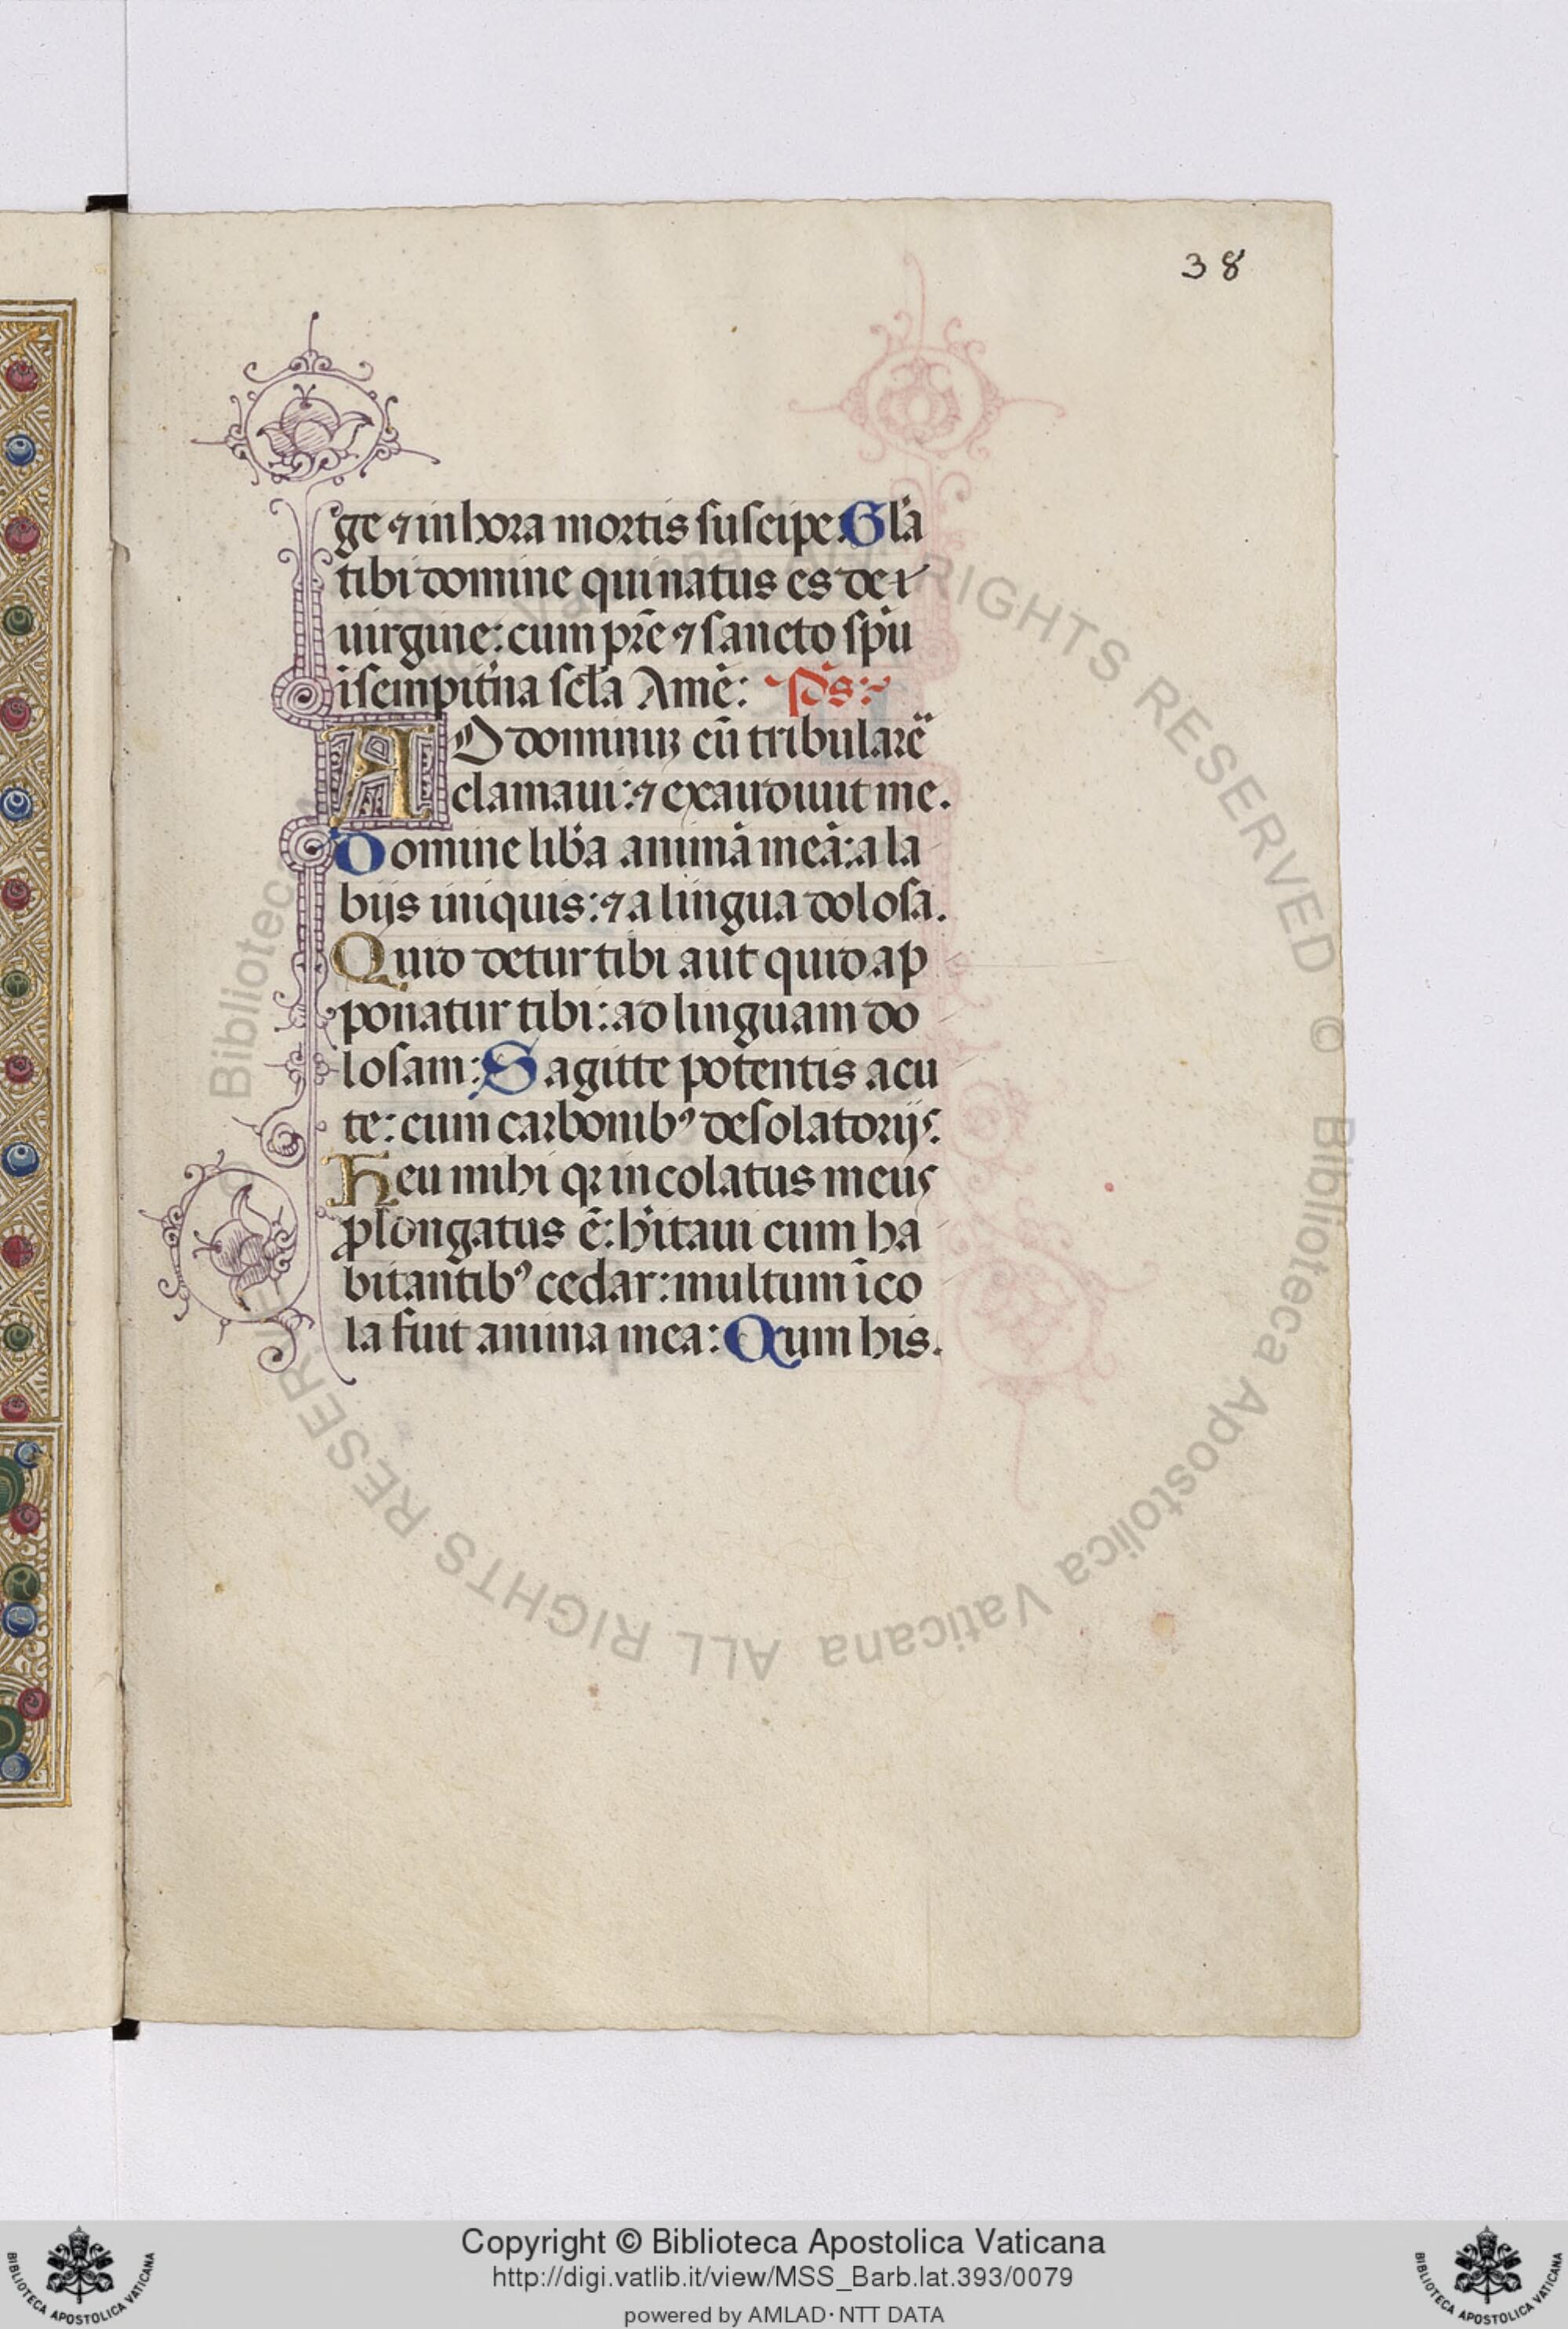 38
ge ⁊ in hora mortis suscipe: Gl̃a
tibi domine qui natus es de
uirgine: cum pr̄e ⁊ sancto sp̄u
ī sempit̾na sc̄la Amē: p̄s:
AD dominuꝫ cū tribularer̄
clamaui: ⁊ exaudiuit me.
Domine lib̾a animā meā: a la
bijs iniquis: ⁊ a lingua dolosa.
Quid detur tibi aut quid ap
ponatur tibi: ad linguam do
losam: Sagitte potentis acu
te: cum carbonibꝰ desolatorijs.
Heu mihi qꝛ incolatus meus
ꝓlongatus ē: h̾itaui cum ha
bitantibꝰ cedar: multum īco
la fuit anima mea: Qum his.
Biblioteca Apostolica Vaticana ALL RIGHTS RESERVED ©
Copyright © Biblioteca Apostolica Vaticana
http://digi.vatlib.it/view/MSS_Barb.lat.393/0079
powered by AMLAD·NTT DATA
BIBLIOTECA APOSTOLICA VATICANA
BIBLIOTECA APOSTOLICA VATICANA